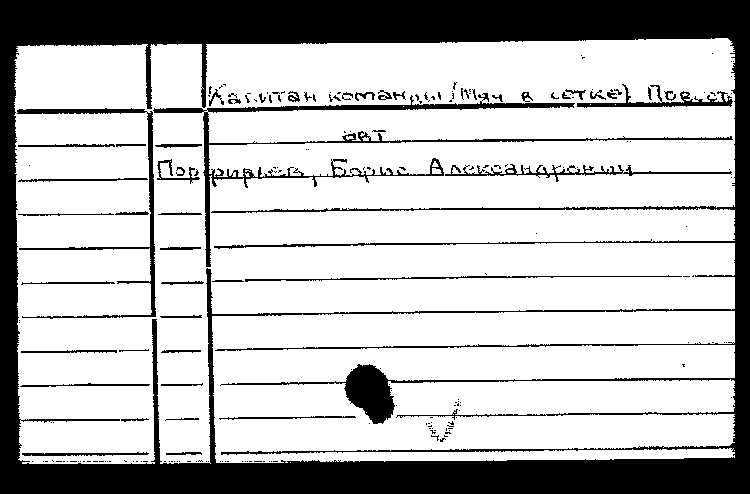 Капитан команды /Мяч в сетке). Повесть
авт
Порфирьев, Борис Александрович